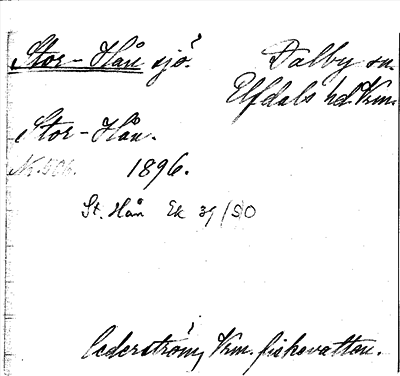 Stor-Hån sjö. Dalby sn.
Elfdals hd. Vrm.
Stor-Hån.
Nr. 506. 1896.
St. Hån Ek 39/50
Cederström, Vrm. fiskevatten.